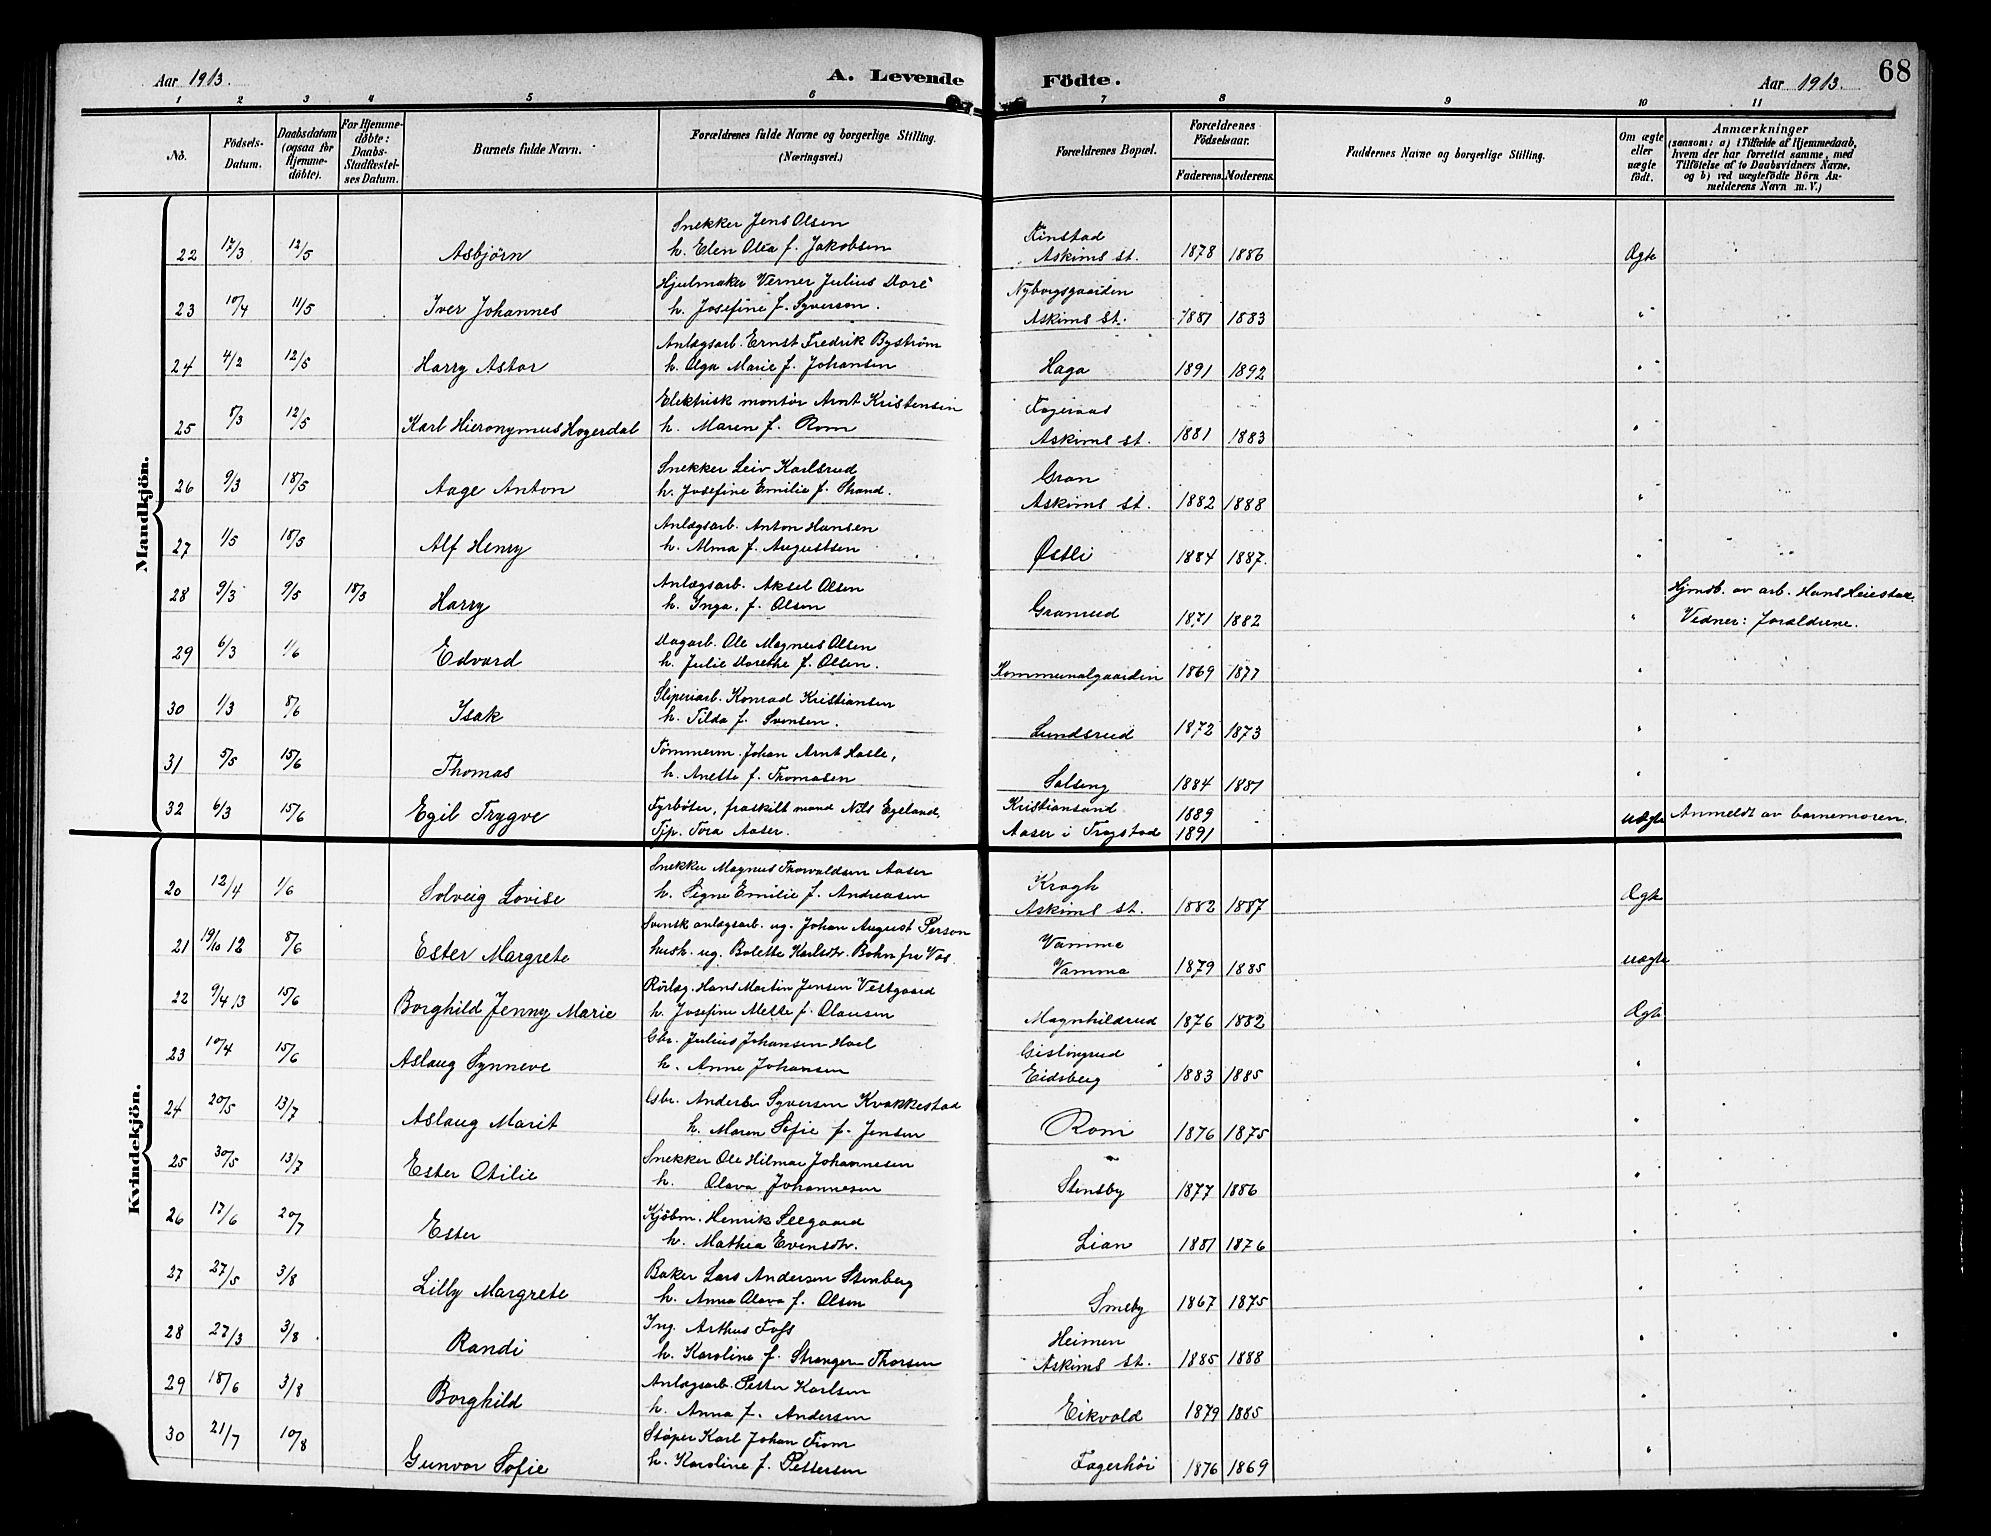 Aar 1913.
A. Levende
Födte.
Aar 1913.
68
1 2 3 4 5 6 7 8 9 10 11
No.
Födsels-Datum.
Daabsdatum (ogsaa for Hjemme-døbte).
For Hjemme-døbte: Daabs-Stadfæstel-ses Datum.
Barnets fulde Navn.
Forældrenes fulde Navne og borgerlige Stilling. (Næringsvei.)
Forældrenes Bopæl.
Forældrenes Födselsaar.
Faderens.
Moderens.
Faddernes Navne og borgerlige Stilling.
Om ægte eller uægte födt.
Anmærkninger
(saasom: a) i Tilfælde af Hjemmedaab, hvem der har forrettet samme, med Tilföielse af to Daabsvidners Navne, og b) ved uægtefödte Börn An-melderens Navn m. V.)
Mandkjön.
Snekker Jens Olsen Finstad
22 17/3 12/5 Asbjörn h. Elen Olea f. Jakobsen Askims st. 1878 1886 Ægte
Hjulmaker Verner Julius Doré Nyborgsgaarden
23 10/4 11/5 Iver Johannes h. Josefine f. Syverson. Askims st. 1881 1883 "
Anlægsarb. Ernst Fredrik Byström
24 4/2 12/5 Harry Astor h. Olga Marie f. Johansen Haga 1891 1892 "
Elektrisk montör Arnt Kristensen Fageraas
25 8/3 12/5 Karl Hieronymus Hogerdal h. Maren f. Rom Askims st. 1881 1883 "
Snekker Leiv Karlsrud Gran
26 9/3 18/5 Aage Anton h. Josefine Emilie f. Strand. Askims st. 1882 1888 "
Anlægsarb. Anton Hansen
27 1/5 18/5 Alf Henry h. Alma f. Augustsen Østli 1884 1887. "
Anlægsarb. Aksel Olsen Hjmdb. av arb. Hans Heiestad.
28 9/3 9/5 18/5 Harry h. Inga, f. Olsen Granrud 1871 1882 " Vidner: Forældrene.
Dagarb. Ole Magnus Olsen
29 6/3 1/6 Edvard h. Julie Dorethe f. Olsen. Kommunalgaarden 1869 1877 "
Sliperiarb. Konrad Kristiansen
30 1/3 8/6 Isak h. Tilda f. Svensen. Lundsrud 1872 1873 "
Tömmerm. Johan Arnt Hasle,
31 5/5 15/6 Thomas h. Anette f. Thomasen Solseng 1884 1881 "
Fyrböter, fraskilt mand Nils Egeland, Kristiansand 1889
32 6/3 15/6 Egil Trygve Tjp. Tora Aaser. Aaser i Trøgstad 1891 uægte Anmeldt av barnemoren.
Kvindekjön.
Snekker Magnus Thorvaldsen Aaser Kragh
20 12/4 1/6 Solveig Lovise h. Signe Emilie f. Andreasen Askims st. 1882 1887 Ægte
Svensk anlægsarb. ug. Johan August Person Vamma
21 19/10 12 8/6 Ester Margrete hush. ug. Bolette Karlsdtr. Bohn fra Vos. Vamma 1879 1885 uægte
Rörlæg. Hans Martin Jensen Vestgaard
22 9/4 13 15/6 Borghild Jenny Marie h. Josefine Mette f. Olausen Magnhildrud 1876 1882 Ægte
Gbr. Julius Johansen Hoel Gislingrud
23 10/4 15/6 Aslaug Synneve h. Anne Johansen Eidsberg 1883 1885 "
Gbr. Anders Syversen Kvakkestad
24 20/5 13/7 Aslaug Marit h. Maren Sofie f. Jensen Rom 1876 1875 "
Snekker Ole Hilmar Johannesen
25 30/5 13/7 Ester Otilie h. Olava Johannesen Stensby 1877 1886 "
Kjöbm. Henrik Seegaard
26 17/6 20/7 Ester h. Mathea Evensdtr. Lian 1881 1876 "
Baker Lars Andersen Stenberg
27 27/5 3/8 Lilly Margrete h. Anna Olava f. Olsen Smeby 1867 1875 "
Ing. Arthus Foss Heimen
28 27/3 3/8 Randi h. Karoline f. Stranger-Thorsen Askims st. 1885 1888 "
Anlægsarb. Petter Karlsen
29 18/6 3/8 Borghild h. Anna f. Andersen Eikvold 1879 1885 "
Stöper Karl Johan From
30 21/7 10/8 Gunvor Sofie h. Karoline f. Pettersen Fagerhöi 1876 1869 "